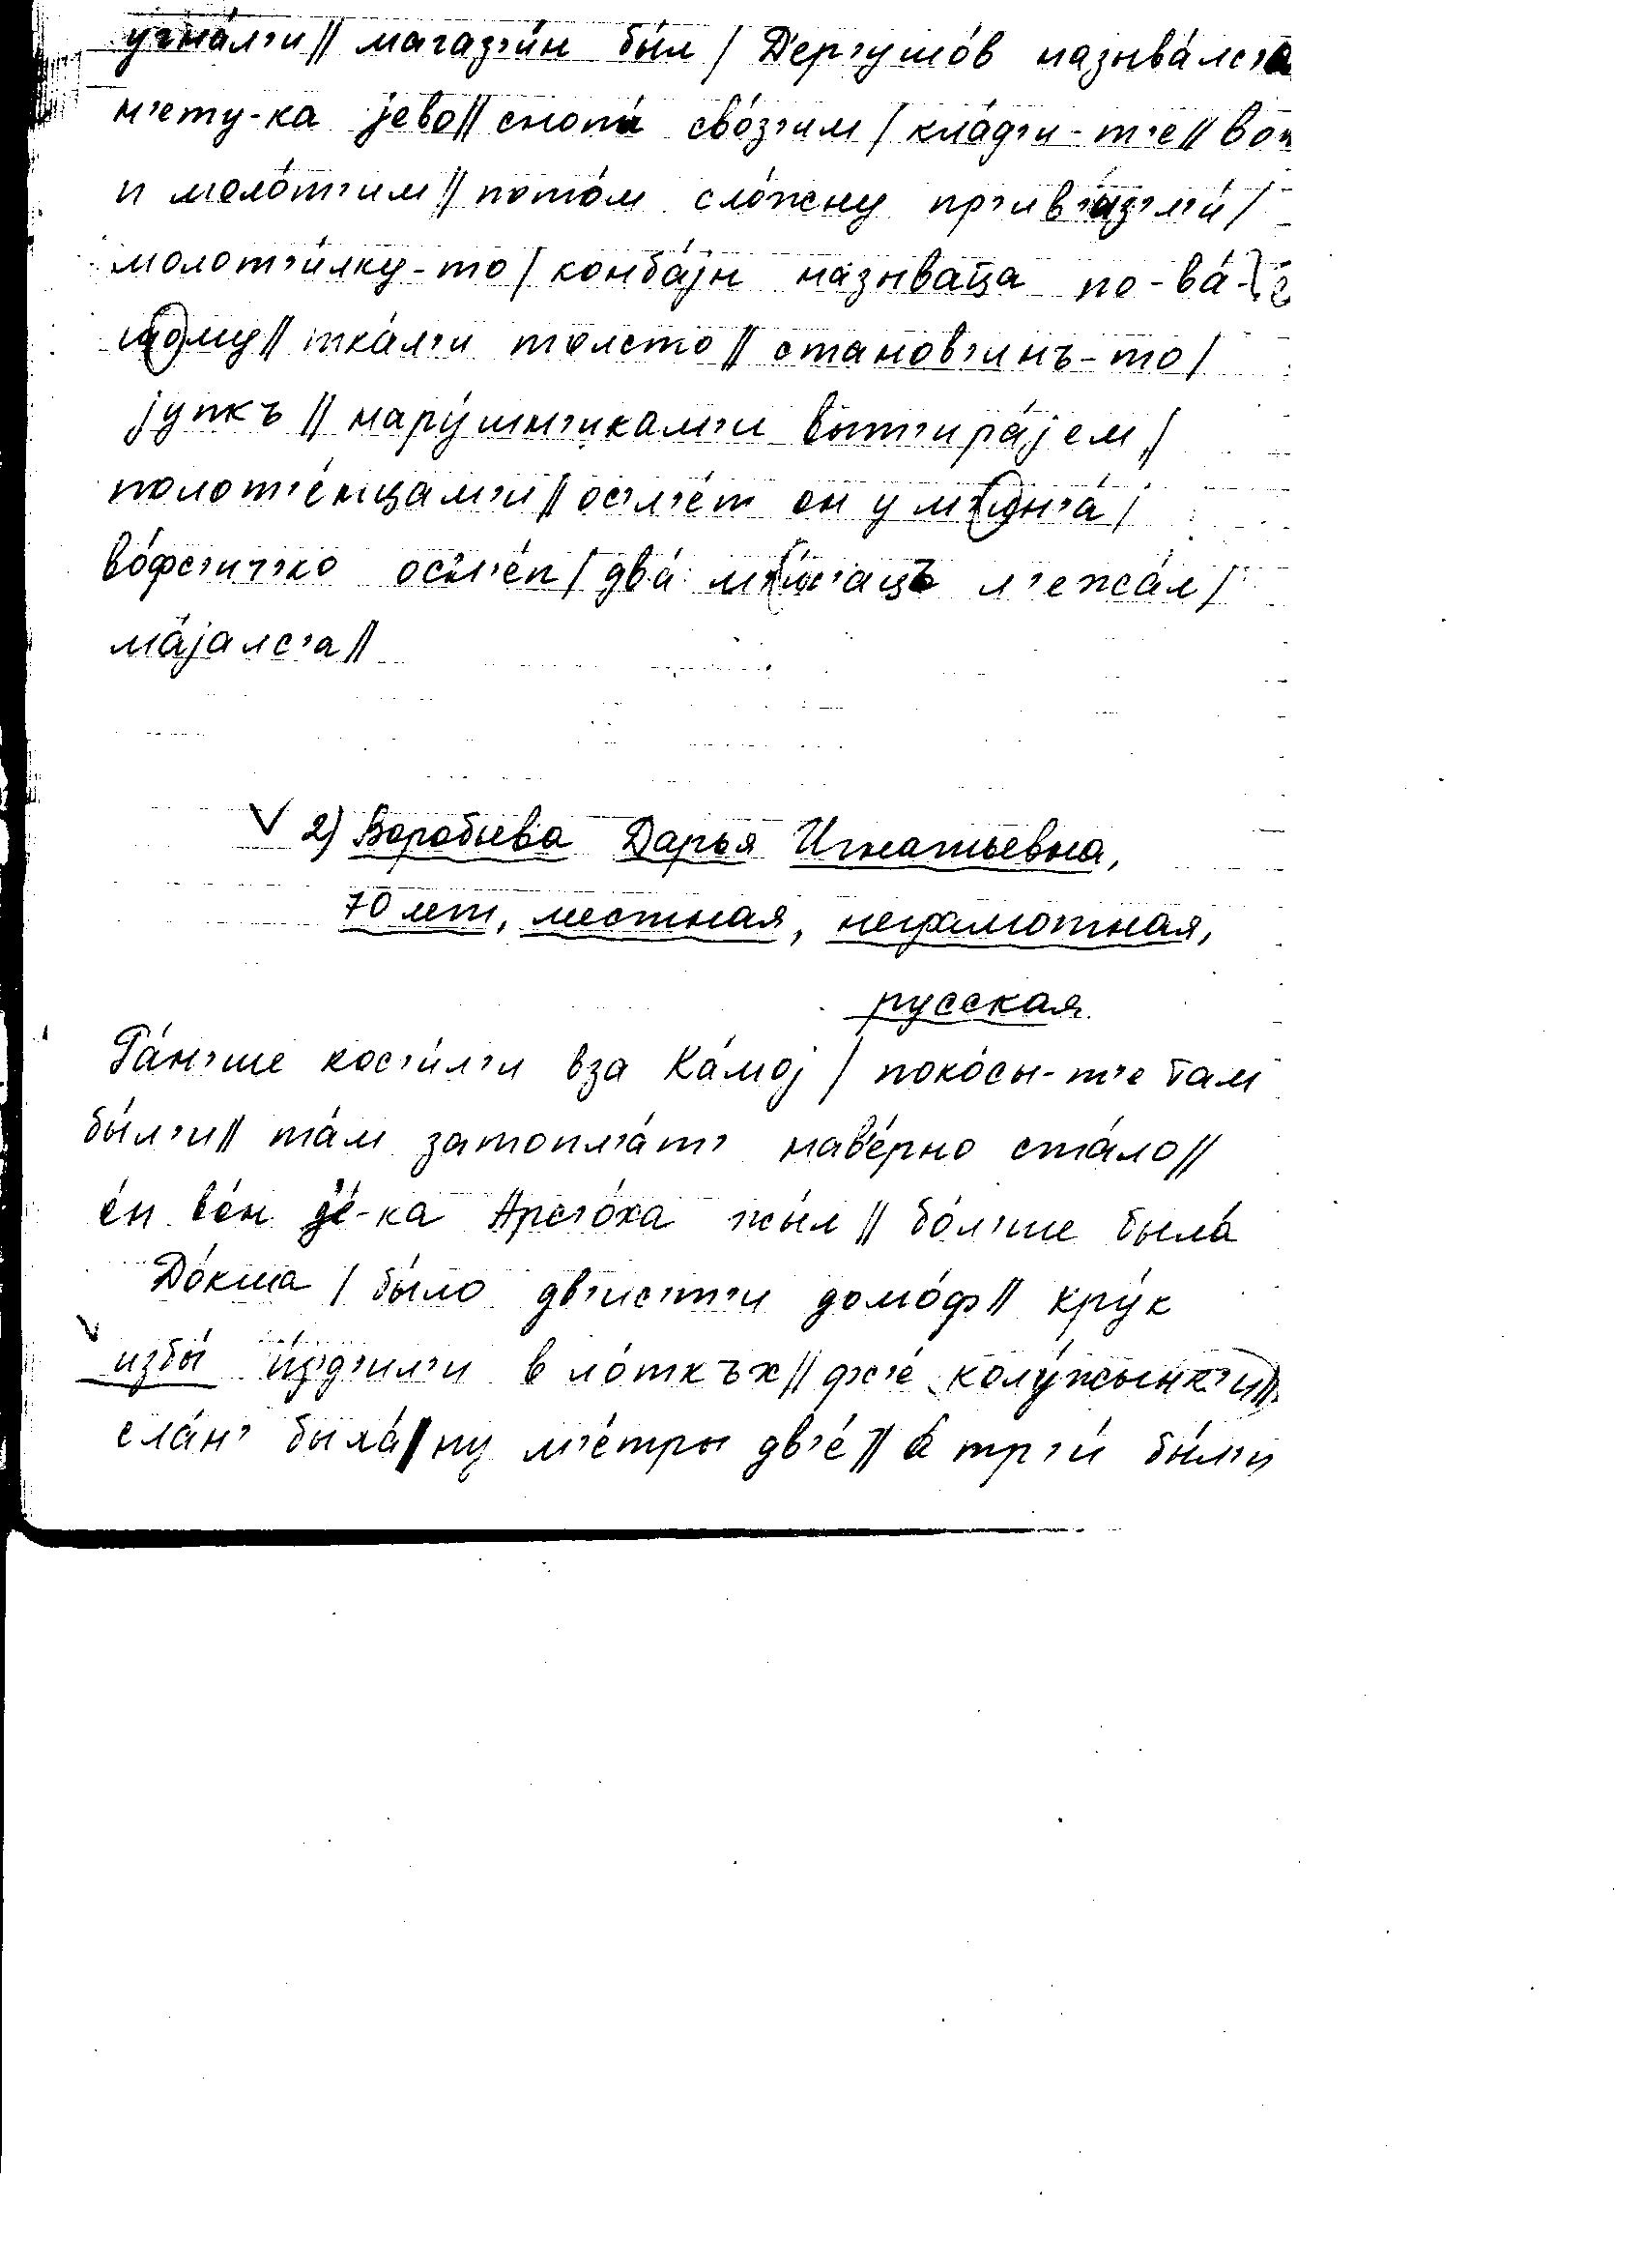 угна́л'и// магаз'и́н бы́л / Д'ер'гушо́в называ́лс'а
н'ету-ка jево// снопы́ сво́з'им / кла́д'и-т'е// вот
и моло́т'им// пото́м сло́жну пр'ив'аз'л'и́ /
молот'и́лку-то / конба́jн называ́ца по-ва́-
шому// тка́л'и толсто// станов'инъ-то /
jупкъ // нару́шн'икам'и выт'ира́jем /
полот'е́нцам'и// осл'е́т он у м'ин'а́ /
во́фс'ич'ко осл'е́п / два́ м'и́с'ацъ л'ежа́л /
ма́jалс'а//
2) Воробьева Дарья Игнатьевна,
70 лет, местная, неграмотная,
русская.
Ра́н'ше кос'и́л'и вза Ка́моj / поко́сы-т'е там
бы́л'и// та́м затопл'а́т' наве́рно ста́ло//
е́н во́н д'е́-ка Арс'о́ха жы́л // бо́л'ше была́
До́кша / бы́ло дв'ис'т'и домо́ф// кру́к
избы́ и́з'д'ил'и в ло́ткъх// фс'е́ колу́жынк'и//
сла́н' была́/ ну м'е́тры дв'е́ // а́ тр'и́ бы́л'и